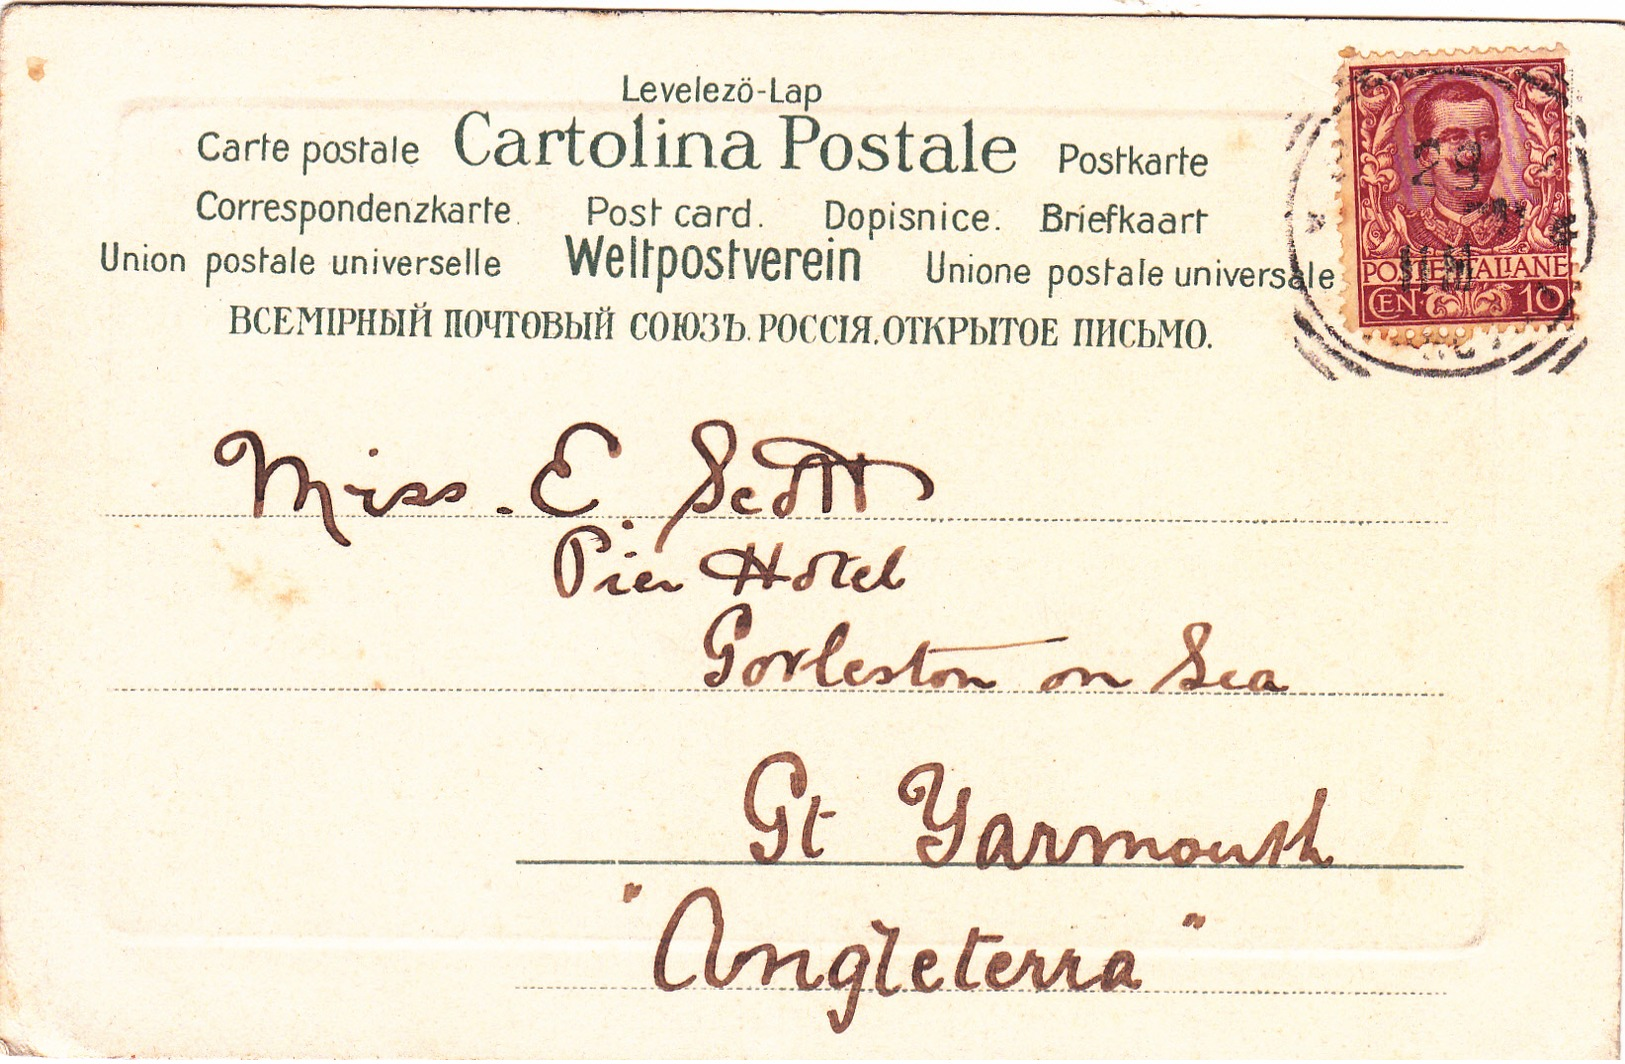 Levelezö-Lap
Carte postale Cartolina Postale Postkarte
Correspondenzkarte. Post card. Dopisnice. Briefkaart
Union postale universelle Weltpostverein Unione postale universale
ВСЕМІРНЫЙ ПОЧТОВЫЙ СОЮЗЪ. РОССІЯ. ОТКРЫТОЕ ПИСЬМО.
POSTE ITALIANE
CEN. 10
Miss. E Scott
Pier Hotel
Gorleston on Sea
Gt Yarmouth
"Angleterra"